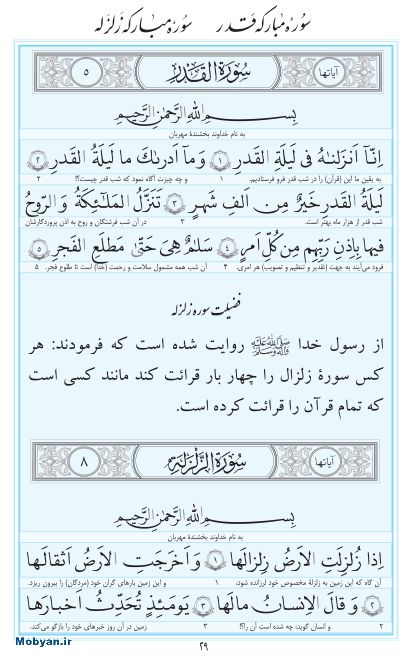 سورهٔ مبارکه قدر    سورهٔ مبارکه زلزله
آیاتها    سورة القدر    ۵
بِسمِ اللهِ الرَّحمٰنِ الرَّحیمِ
به نام خداوند بخشندهٔ مهربان
اِنّآ اَنزَلنٰهُ فی لَیلَةِ القَدرِ ۱ وَ مآ اَدرىٰكَ ما لَیلَةُ القَدرِ ۲
به یقین ما این (قرآن) را در شب قدر فرو فرستادیم. ۱ و چه چیزت آگاه نمود که شب قدر چیست؟! ۲
لَیلَةُ القَدرِ خَیرٌ مِن اَلفِ شَهرٍ ۳ تَنَزَّلُ المَلٰٓئِكَةُ وَ الرّوحُ
شب قدر از هزار ماه بهتر است. ۳ در آن شب فرشتگان و روح به اذن پروردگارشان
فیها بِاِذنِ رَبِّهِم مِن كُلِّ اَمرٍ ۴ سَلٰمٌ هِیَ حَتّىٰ مَطلَعِ الفَجرِ ۵
فرود می‌آیند به جهت (تقدیر و تنظیم و تصویب) هر امری. ۴ آن شب همه مشمول سلامت و رحمت (خدا) است تا طلوع فجر. ۵
فضیلت سوره زلزله
از رسول خدا ﷺ روایت شده است که فرمودند: هر
کس سورهٔ زلزال را چهار بار قرائت کند مانند کسی است
که تمام قرآن را قرائت کرده است.
آیاتها    سورة الزلزلة    ۸
بِسمِ اللهِ الرَّحمٰنِ الرَّحیمِ
به نام خداوند بخشندهٔ مهربان
اِذا زُلزِلَتِ الاَرضُ زِلزالَها ۱ وَ اَخرَجَتِ الاَرضُ اَثقالَها
آن گاه که این زمین به زلزلهٔ مخصوص خود لرزانده شود، ۱ و این زمین بارهای گران خود (مردگان) را بیرون ریزد.
۲ وَ قالَ الاِنسانُ مالَها ۳ یَومَئِذٍ تُحَدِّثُ اَخبارَها
۲ و انسان گوید: چه شده است آن را؟! ۳ زمین در آن روز خبرهای خود را بازگو می‌کند.
Mobyan.ir
۲۹